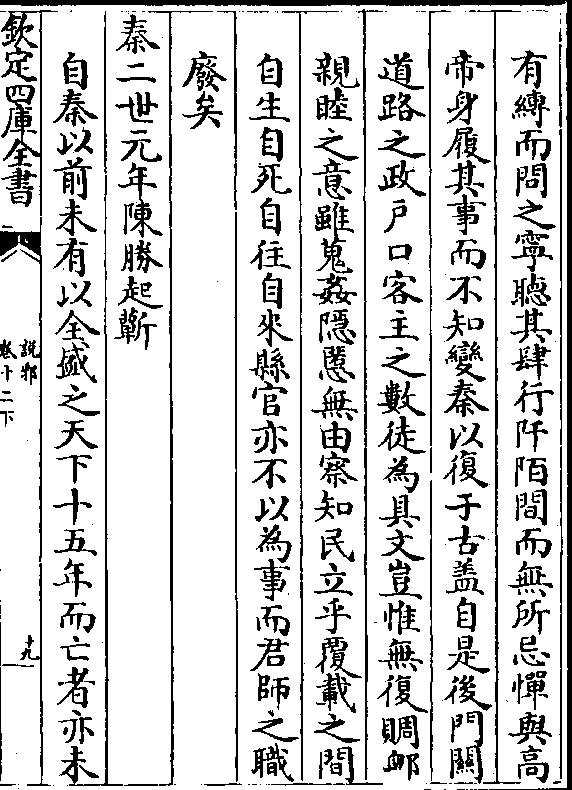 有縳而問之寧聽其肆行阡陌間而無所忌憚與高
帝身履其事而不知變秦以復于古盖自是後門關
道路之政戶口客主之數徒為具文豈惟無復賙䘏
親睦之意雖蒐姦隱慝無由察知民立乎覆載之間
自生自死自往自來縣官亦不以為事而君師之職
廢矣
秦二世元年陳勝起蘄
自秦以前未有以全盛之天下十五年而亡者亦未
欽定四庫全書
卷十二下
十九